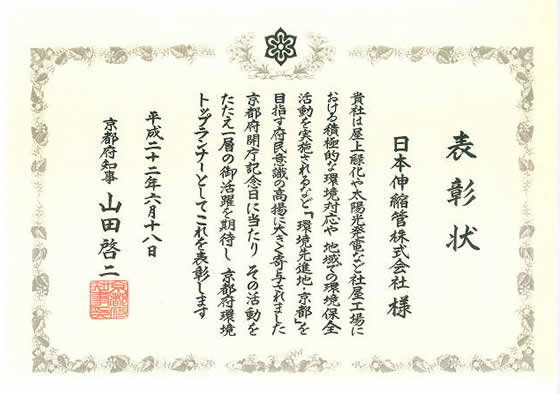 表彰状
日本伸縮管株式会社 様
貴社は屋上緑化や太陽光発電など社屋工場に
おける積極的な環境対応や 地域での環境保全
活動を実施されるなど「環境先進地・京都」を
目指す府民意識の高揚に大きく寄与されました
京都府開庁記念日に当たり その活動を
たたえ一層の御活躍を期待し 京都府環境
トップランナーとしてこれを表彰します
平成二十二年六月十八日
京都府知事 山田啓二